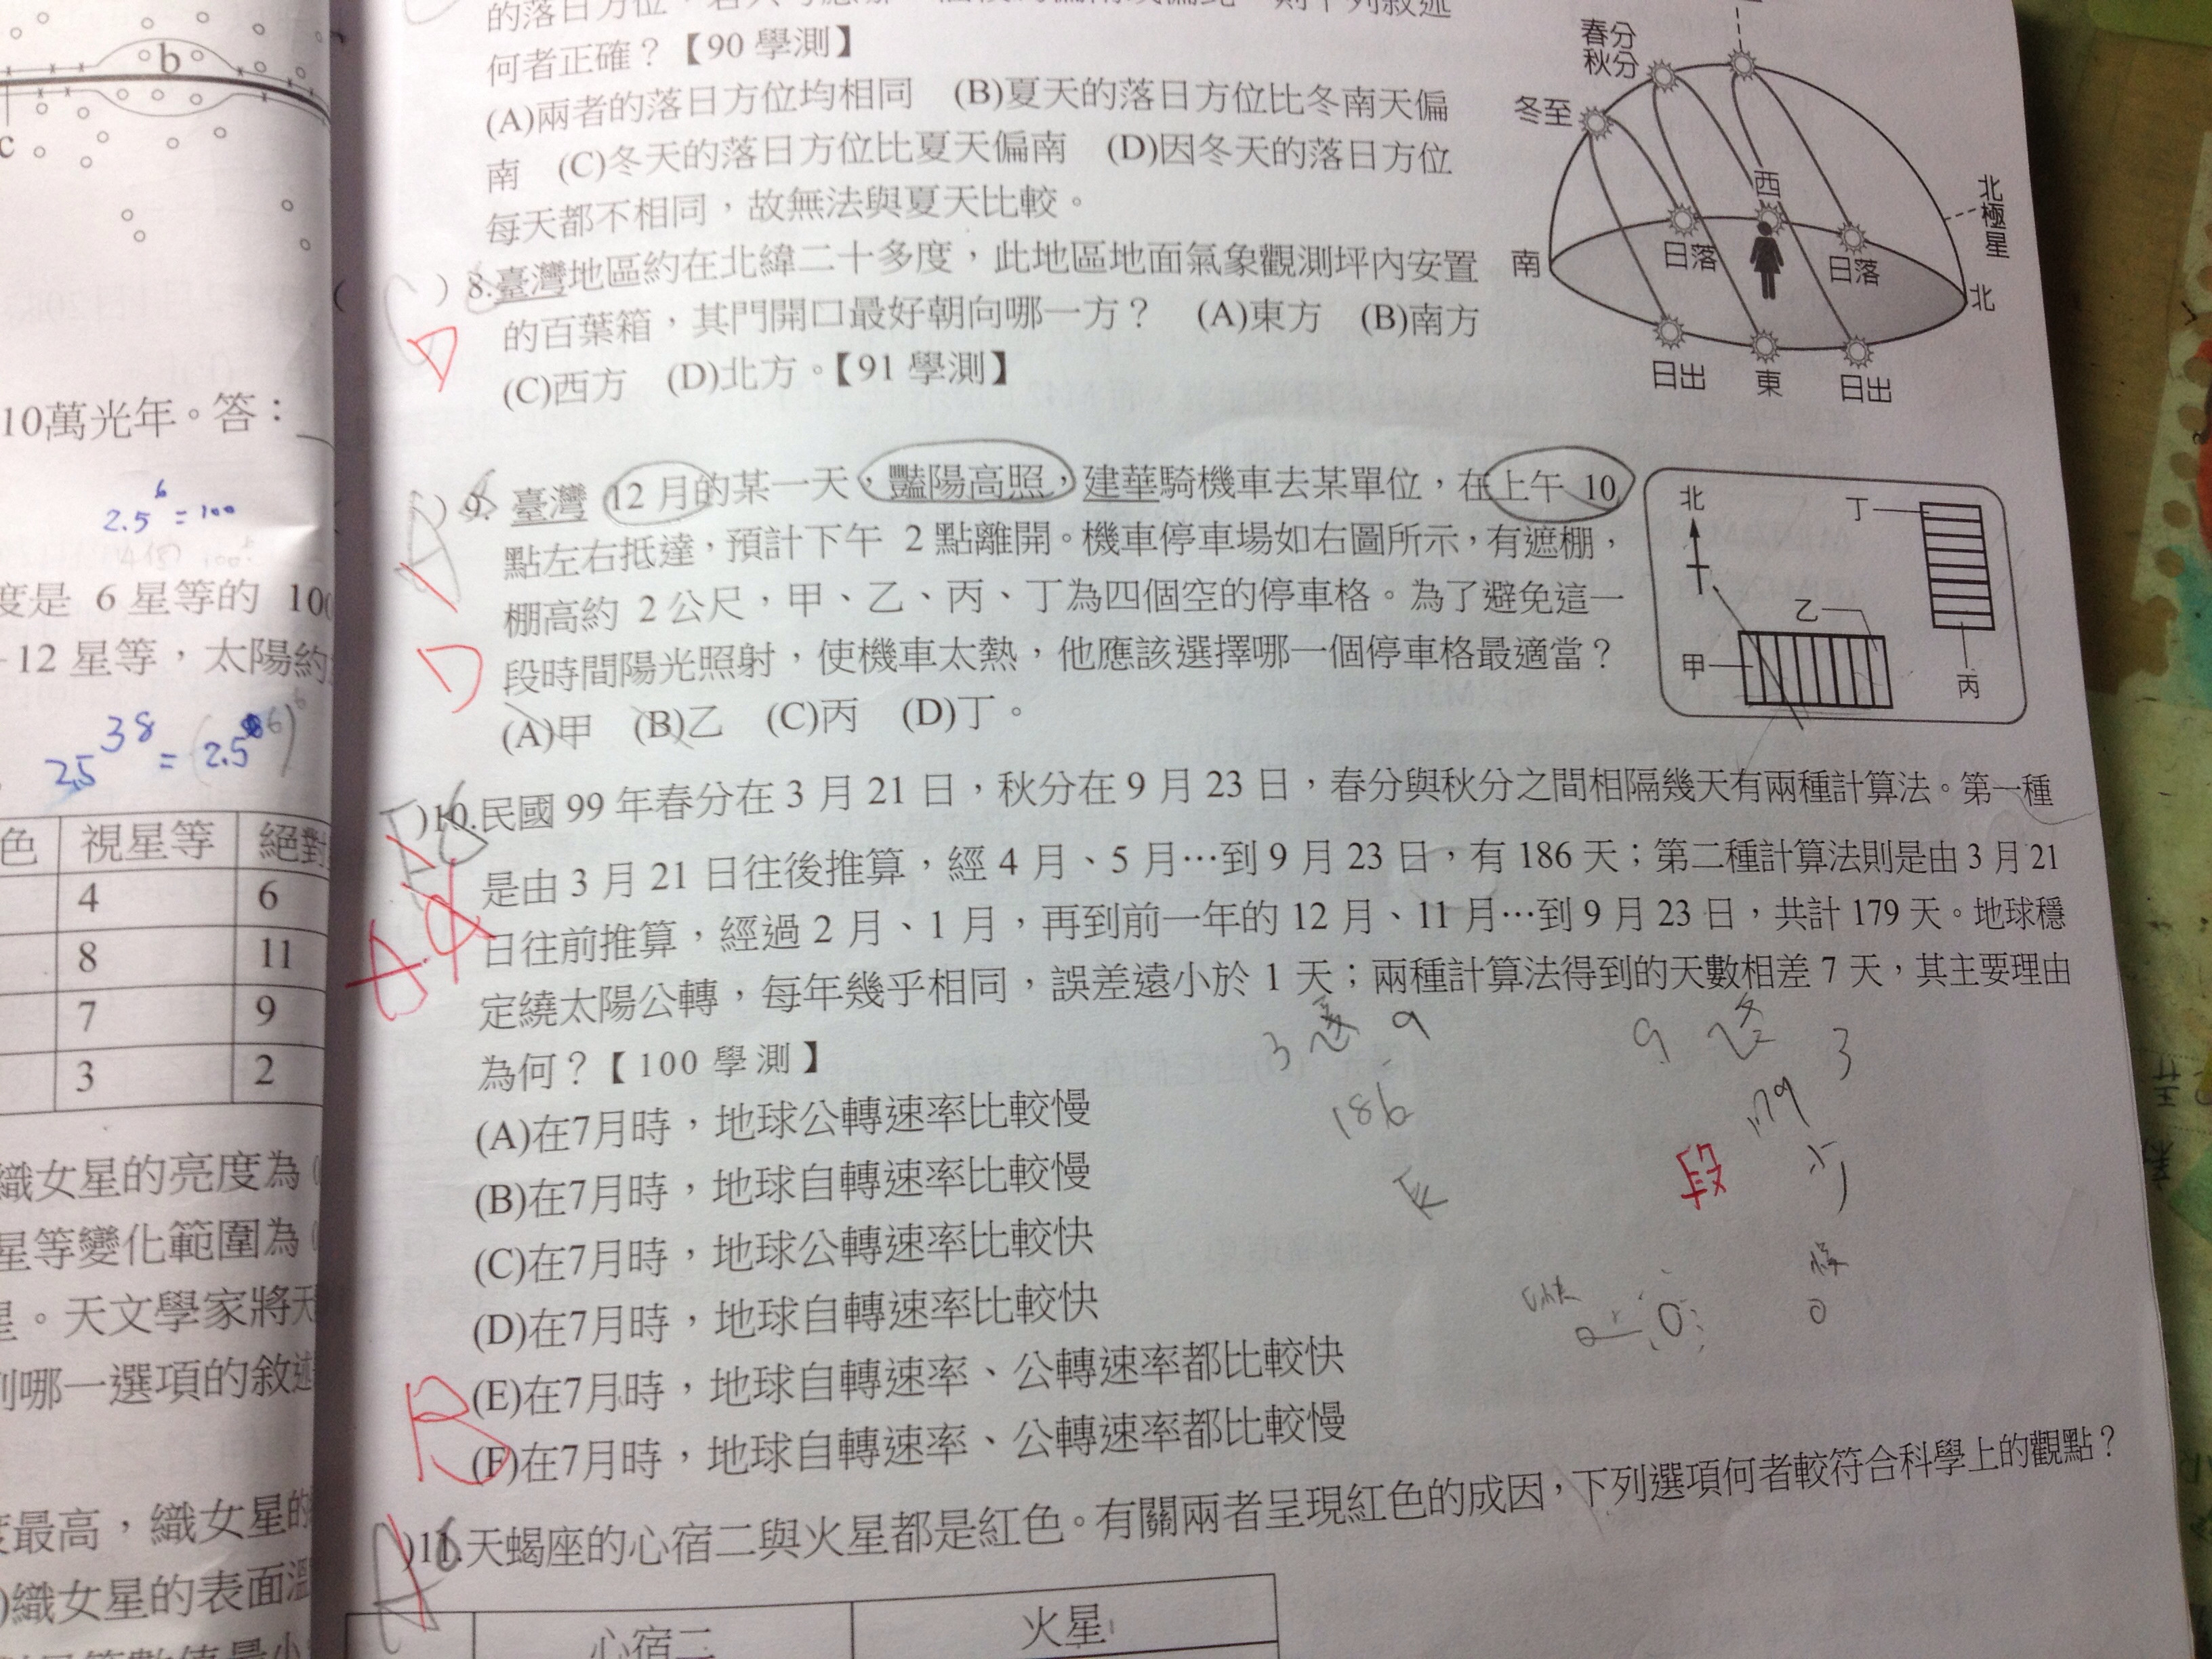 b
c
10萬光年。答：
2.5⁶=100
度是 6星等的 100
-12 星等，太陽約
2.5³⁸=(2.5⁶)⁶
色 視星等 絕對
4 6
8 11
7 9
3 2
織女星的亮度為
星等變化範圍為
星。天文學家將天
列哪一選項的敘述
度最高，織女星的
)織女星的表面溫
何者正確？【90 學測】
(A)兩者的落日方位均相同 (B)夏天的落日方位比冬南天偏
南 (C)冬天的落日方位比夏天偏南 (D)因冬天的落日方位
每天都不相同，故無法與夏天比較。
春分
秋分
冬至
西
北極星
南
日落
日落
北
日出
東
日出
D
)8.臺灣地區約在北緯二十多度，此地區地面氣象觀測坪內安置
的百葉箱，其門開口最好朝向哪一方？ (A)東方 (B)南方
(C)西方 (D)北方。【91 學測】
D
)9. 臺灣 12 月的某一天，豔陽高照，建華騎機車去某單位，在上午 10
點左右抵達，預計下午 2 點離開。機車停車場如右圖所示，有遮棚，
棚高約 2 公尺，甲、乙、丙、丁為四個空的停車格。為了避免這一
段時間陽光照射，使機車太熱，他應該選擇哪一個停車格最適當？
(A)甲 (B)乙 (C)丙 (D)丁。
北
丁
乙
甲
丙
)10.民國 99 年春分在 3 月 21 日，秋分在 9 月 23 日，春分與秋分之間相隔幾天有兩種計算法。第一種
是由 3 月 21 日往後推算，經 4 月、5 月…到 9 月 23 日，有 186 天；第二種計算法則是由 3 月 21
日往前推算，經過 2 月、1 月，再到前一年的 12 月、11 月…到 9 月 23 日，共計 179 天。地球穩
定繞太陽公轉，每年幾乎相同，誤差遠小於 1 天；兩種計算法得到的天數相差 7 天，其主要理由
為何？【100 學測】
3 9
9 3
186
179
(A)在7月時，地球公轉速率比較慢
(B)在7月時，地球自轉速率比較慢
(C)在7月時，地球公轉速率比較快
(D)在7月時，地球自轉速率比較快
(E)在7月時，地球自轉速率、公轉速率都比較快
(F)在7月時，地球自轉速率、公轉速率都比較慢
B
)11.天蠍座的心宿二與火星都是紅色。有關兩者呈現紅色的成因，下列選項何者較符合科學上的觀點？
心宿二 火星